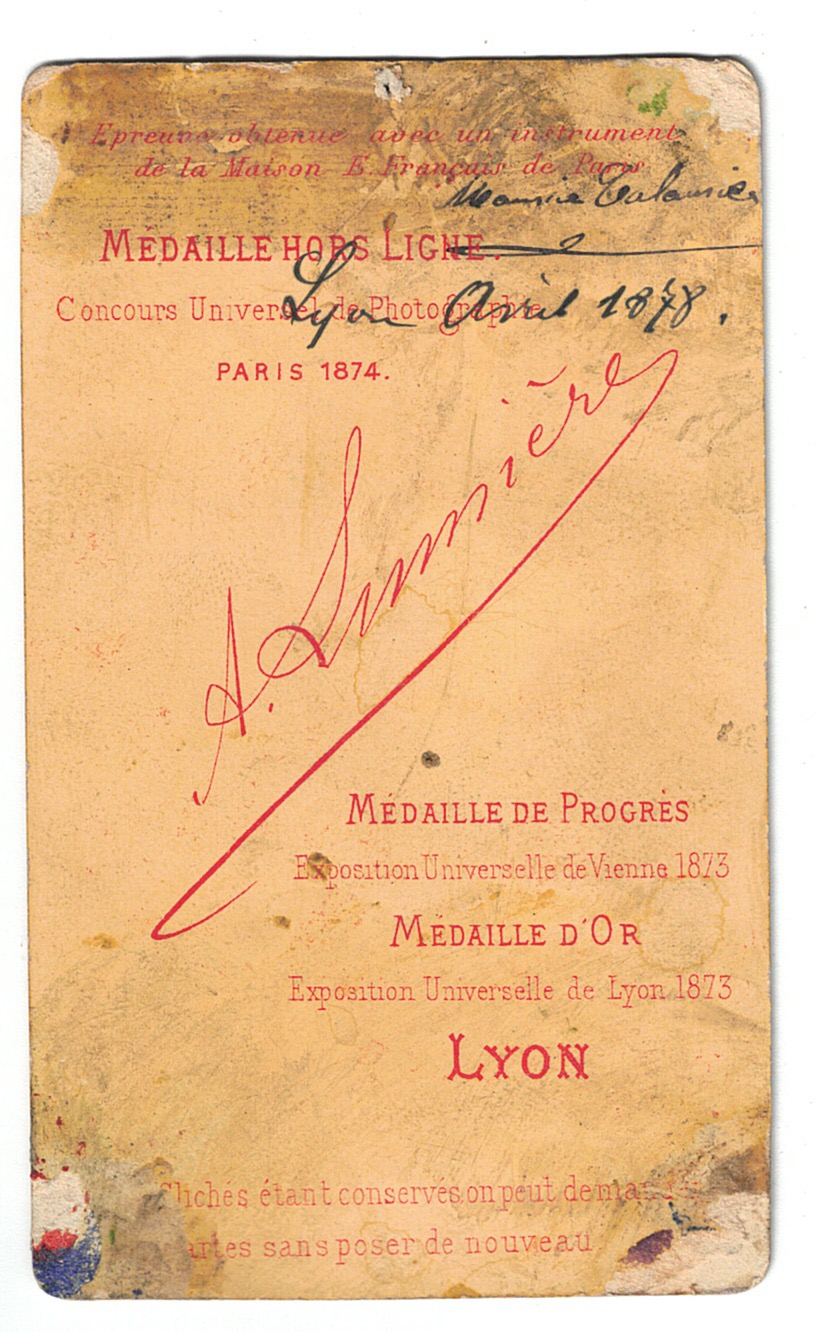 Epreuve obtenue avec un instrument
de la Maison E. Français de Paris
Maurice
MÉDAILLE HORS LIGNE.
Lyon Avril 1878.
Concours Universel de Photographie
PARIS 1874.
A. Lumière
MÉDAILLE DE PROGRÈS
Exposition Universelle de Vienne 1873
MÉDAILLE D'OR
Exposition Universelle de Lyon 1873
LYON
Clichés étant conservés on peut
sans poser de nouveau